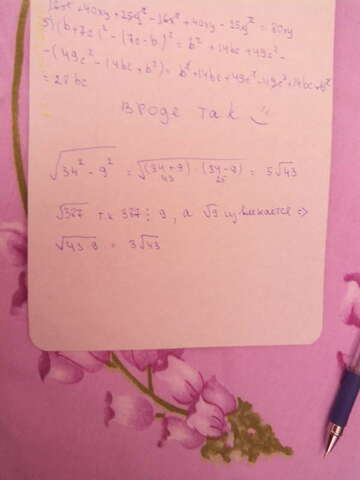 16x² + 40xy + 25y² - 16x² + 40xy - 25y² = 80xy
5) (b + 7c)² - (7c - b)² = b² + 14bc + 49c² -
- (49c² - 14bc + b²) = b² + 14bc + 49c² - 49c² + 14bc - b²
= 28bc
Вроде так
√34² - 9² = √(34 + 9) · (34 - 9) = 5√43
43 25
√387 т.к 387 ⋮ 9, а √9 извлекается =>
√43·9 = 3√43